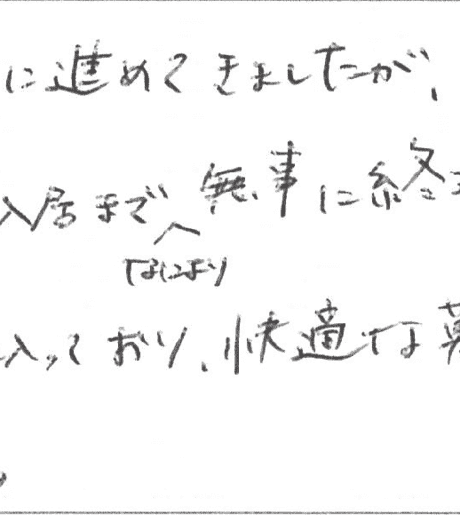 に進めてきましたが、
入居まで無事に終
なにより
入っており、快適な暮